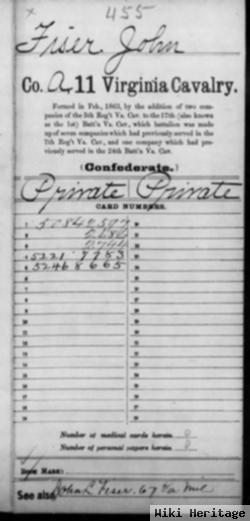 455
Fiser John
Co. A, 11 Virginia Cavalry.
Formed in Feb., 1863, by the addition of two com-
panies of the 5th Reg't Va. Cav. to the 17th (also known
as the 1st) Batt'n Va. Cav., which battalion was made
up of seven companies which had previously served in the
7th Reg't Va. Cav., and one company which had pre-
viously served in the 24th Batt'n Va. Cav.
(Confederate.)
Private Private
CARD NUMBERS.
1 50840597
2
3
4 5221 9983
5 52468665
Number of medical cards herein 0
Number of personal papers herein 0
BOOK MARK:
See also John L Fiser. 67 Va Mil
Wiki Heritage